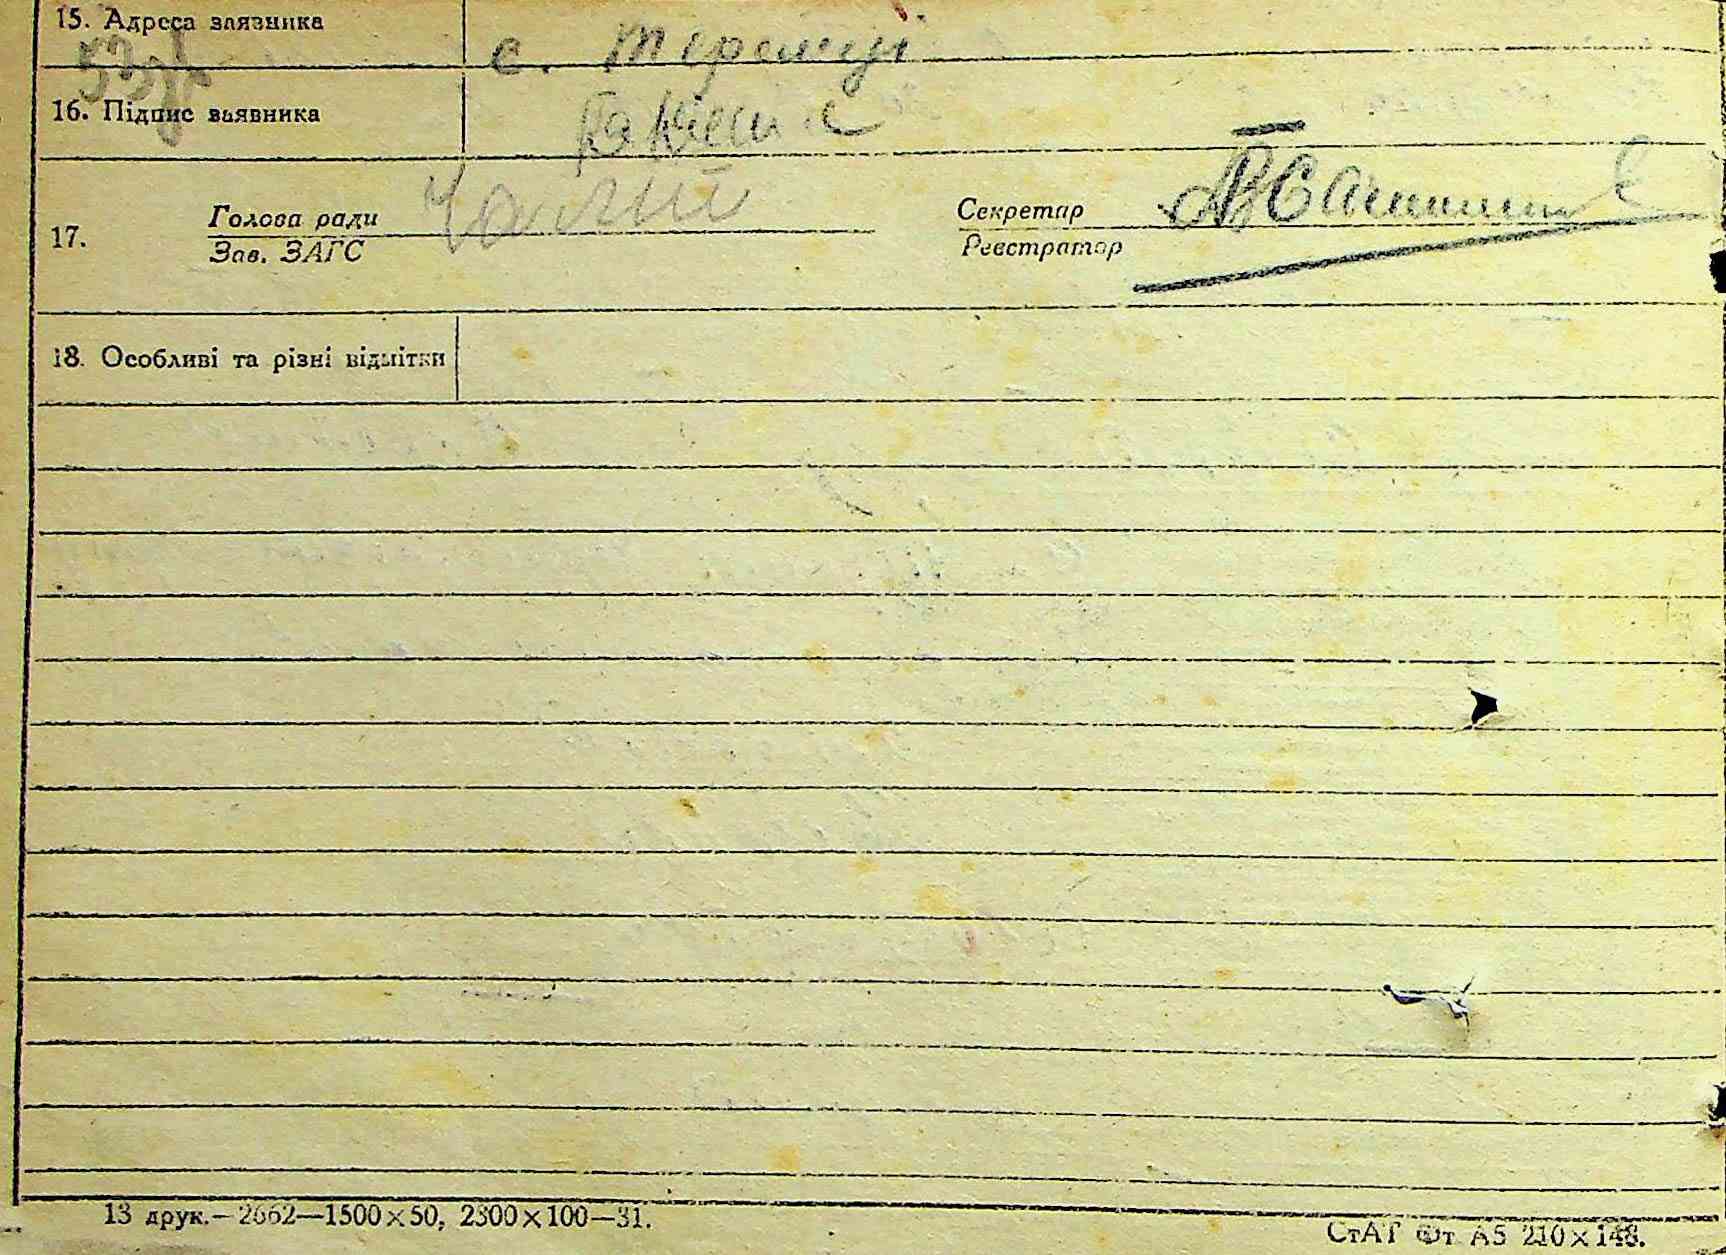 15. Адреса заязника с. теремці
16. Підпис заявника
17. Голова ради Чалий Секретар
Зав. ЗАГС Реєстратор
18. Особливі та різні відмітки
13 друк.—2662—1500×50, 2300×100—31.
СтАТ Фт А5 210×148.